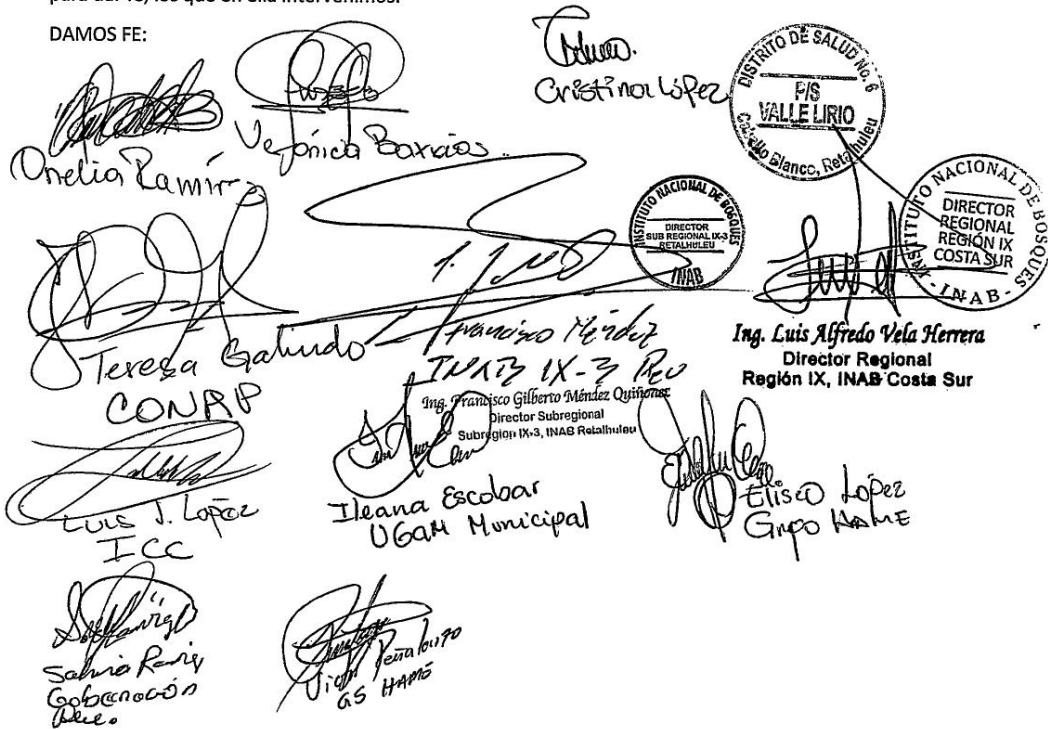 DAMOS FE:
Cristina López
DISTRITO DE SALUD No. 6
P/S
VALLE LIRIO
Caballo Blanco, Retalhuleu
Onelia Ramírez
Verónica Barrios
INSTITUTO NACIONAL DE BOSQUES
DIRECTOR
SUB REGIONAL IX-3
RETALHULEU
INAB
INSTITUTO NACIONAL DE BOSQUES
DIRECTOR
REGIONAL
REGIÓN IX
COSTA SUR
- INAB -
Ing. Luis Alfredo Vela Herrera
Director Regional
Región IX, INAB Costa Sur
Teresa
CONAP
Francisco Méndez
INAB IX-3 Reu
Ing. Francisco Gilberto Méndez Quiñonez
Director Subregional
Subregión IX-3, INAB Retalhuleu
Luis J. López
ICC
Ileana Escobar
UGAM Municipal
Eliseo López
Grupo HAME
Gobernación
Reu.
GS HAME